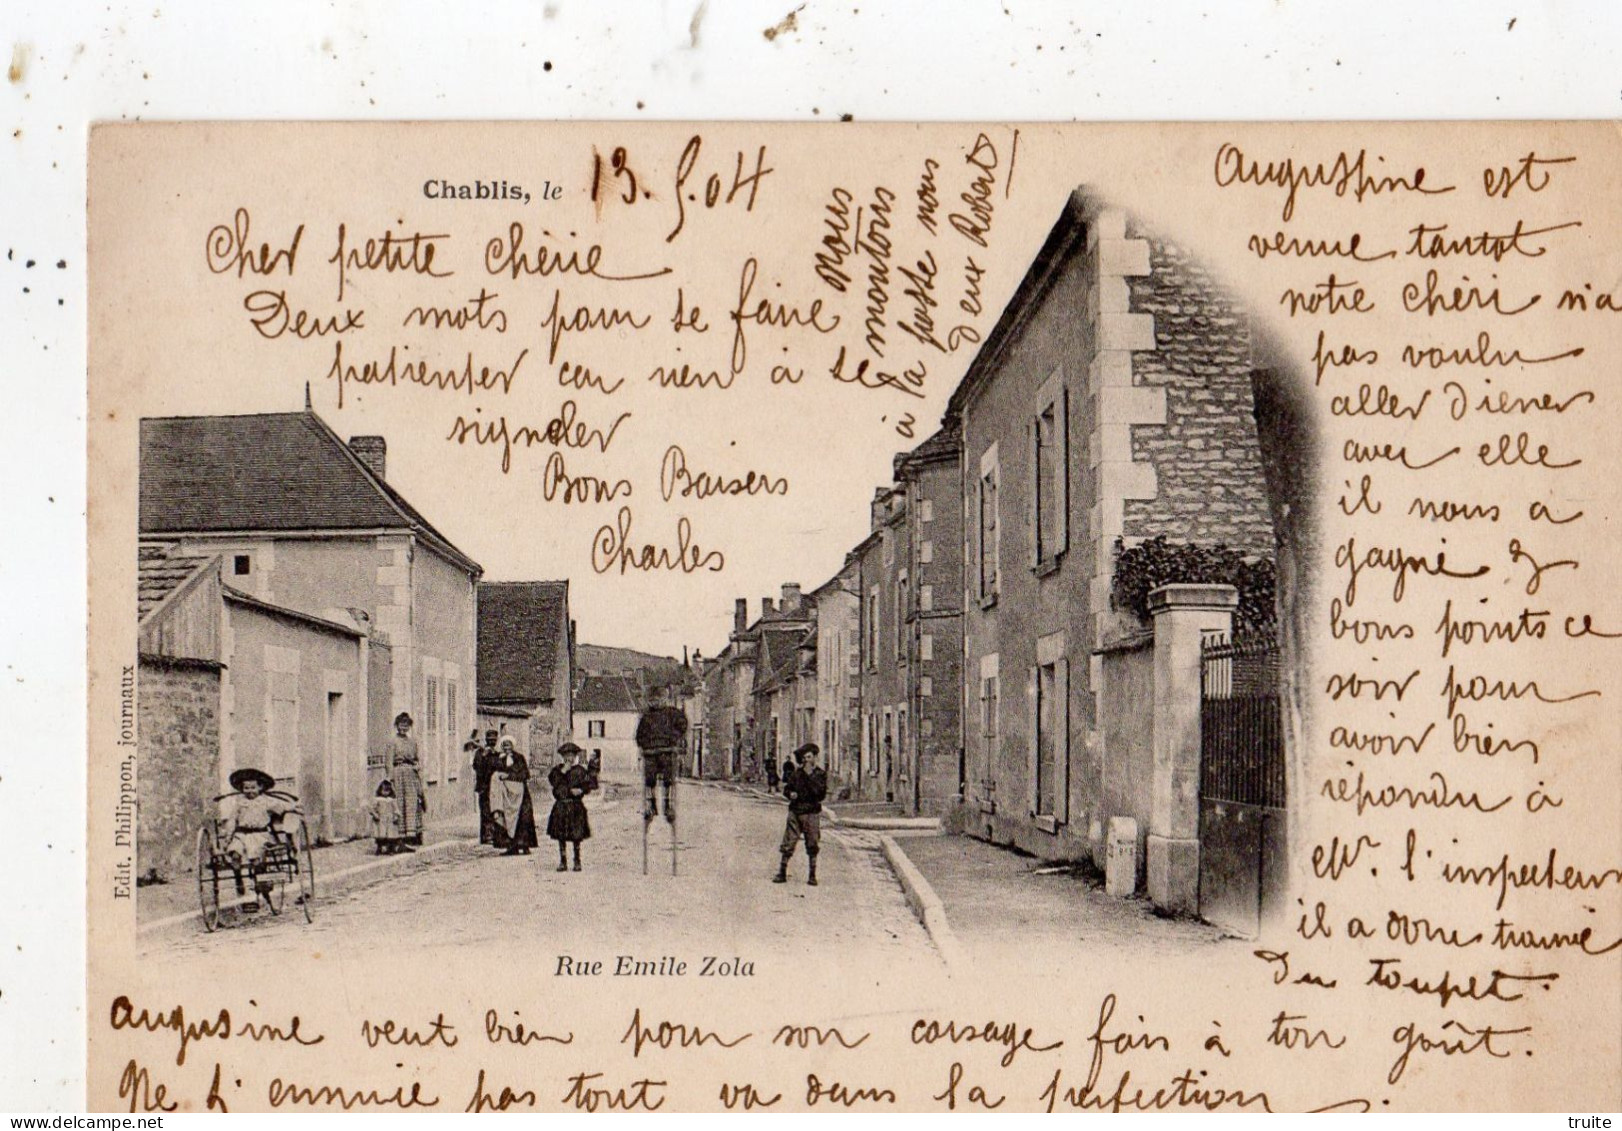 Chablis, le 13.5.04
Cher petite Chérie
Deux mots pour te faire
patienter car rien à te
signaler
Bons Baisers
Charles
Nous
montons
à la poste nous
deux Robert
Augustine est
venue tantot
notre Chéri n'a
pas voulu
aller diener
avec elle
il nous a
gagné 3
bons points ce
soir pour
avoir bien
répondu à
Mr. l'inspecteur
il a donc trouvé
du toupet.
Augusine veut bien pour son corsage fais à ton goût.
Ne t'ennuie pas tout va dans la perfection.
Rue Emile Zola
Edit. Philippon, journaux
truite